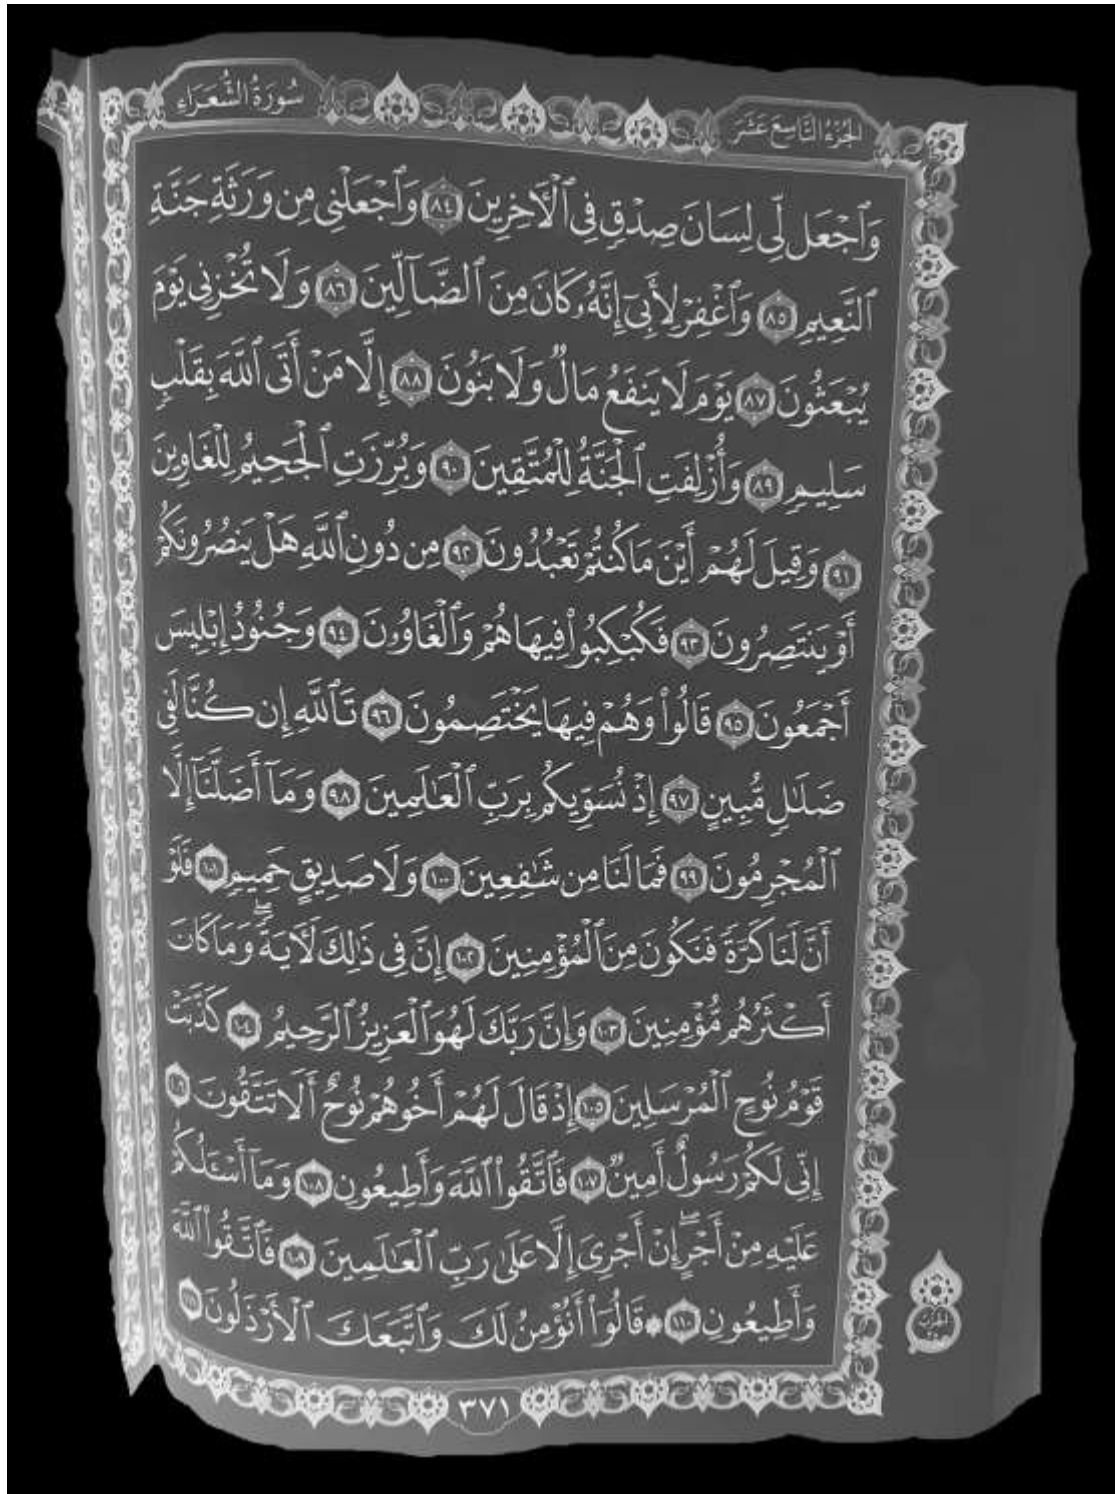 الجُزْءُ التَّاسِعَ عَشَرَ
سُورَةُ الشُّعَرَاءِ
وَٱجْعَل لِّى لِسَانَ صِدْقٍ فِى ٱلْءَاخِرِينَ ٨٤ وَٱجْعَلْنِى مِن وَرَثَةِ جَنَّةِ
ٱلنَّعِيمِ ٨٥ وَٱغْفِرْ لِأَبِىٓ إِنَّهُۥ كَانَ مِنَ ٱلضَّآلِّينَ ٨٦ وَلَا تُخْزِنِى يَوْمَ
يُبْعَثُونَ ٨٧ يَوْمَ لَا يَنفَعُ مَالٌ وَلَا بَنُونَ ٨٨ إِلَّا مَنْ أَتَى ٱللَّهَ بِقَلْبٍ
سَلِيمٍ ٨٩ وَأُزْلِفَتِ ٱلْجَنَّةُ لِلْمُتَّقِينَ ٩٠ وَبُرِّزَتِ ٱلْجَحِيمُ لِلْغَاوِينَ
٩١ وَقِيلَ لَهُمْ أَيْنَ مَا كُنتُمْ تَعْبُدُونَ ٩٢ مِن دُونِ ٱللَّهِ هَلْ يَنصُرُونَكُمْ
أَوْ يَنتَصِرُونَ ٩٣ فَكُبْكِبُوا۟ فِيهَا هُمْ وَٱلْغَاوُۥنَ ٩٤ وَجُنُودُ إِبْلِيسَ
أَجْمَعُونَ ٩٥ قَالُوا۟ وَهُمْ فِيهَا يَخْتَصِمُونَ ٩٦ تَٱللَّهِ إِن كُنَّا لَفِى
ضَلَٰلٍ مُّبِينٍ ٩٧ إِذْ نُسَوِّيكُم بِرَبِّ ٱلْعَٰلَمِينَ ٩٨ وَمَآ أَضَلَّنَآ إِلَّا
ٱلْمُجْرِمُونَ ٩٩ فَمَا لَنَا مِن شَٰفِعِينَ ١٠٠ وَلَا صَدِيقٍ حَمِيمٍ ١٠١ فَلَوْ
أَنَّ لَنَا كَرَّةً فَنَكُونَ مِنَ ٱلْمُؤْمِنِينَ ١٠٢ إِنَّ فِى ذَٰلِكَ لَءَايَةً ۖ وَمَا كَانَ
أَكْثَرُهُم مُّؤْمِنِينَ ١٠٣ وَإِنَّ رَبَّكَ لَهُوَ ٱلْعَزِيزُ ٱلرَّحِيمُ ١٠٤ كَذَّبَتْ
قَوْمُ نُوحٍ ٱلْمُرْسَلِينَ ١٠٥ إِذْ قَالَ لَهُمْ أَخُوهُمْ نُوحٌ أَلَا تَتَّقُونَ ١٠٦
إِنِّى لَكُمْ رَسُولٌ أَمِينٌ ١٠٧ فَٱتَّقُوا۟ ٱللَّهَ وَأَطِيعُونِ ١٠٨ وَمَآ أَسْـَٔلُكُمْ
عَلَيْهِ مِنْ أَجْرٍ ۖ إِنْ أَجْرِىَ إِلَّا عَلَىٰ رَبِّ ٱلْعَٰلَمِينَ ١٠٩ فَٱتَّقُوا۟ ٱللَّهَ
وَأَطِيعُونِ ١١٠ ۞ قَالُوٓا۟ أَنُؤْمِنُ لَكَ وَٱتَّبَعَكَ ٱلْأَرْذَلُونَ ١١١
الحزب
٣٧١